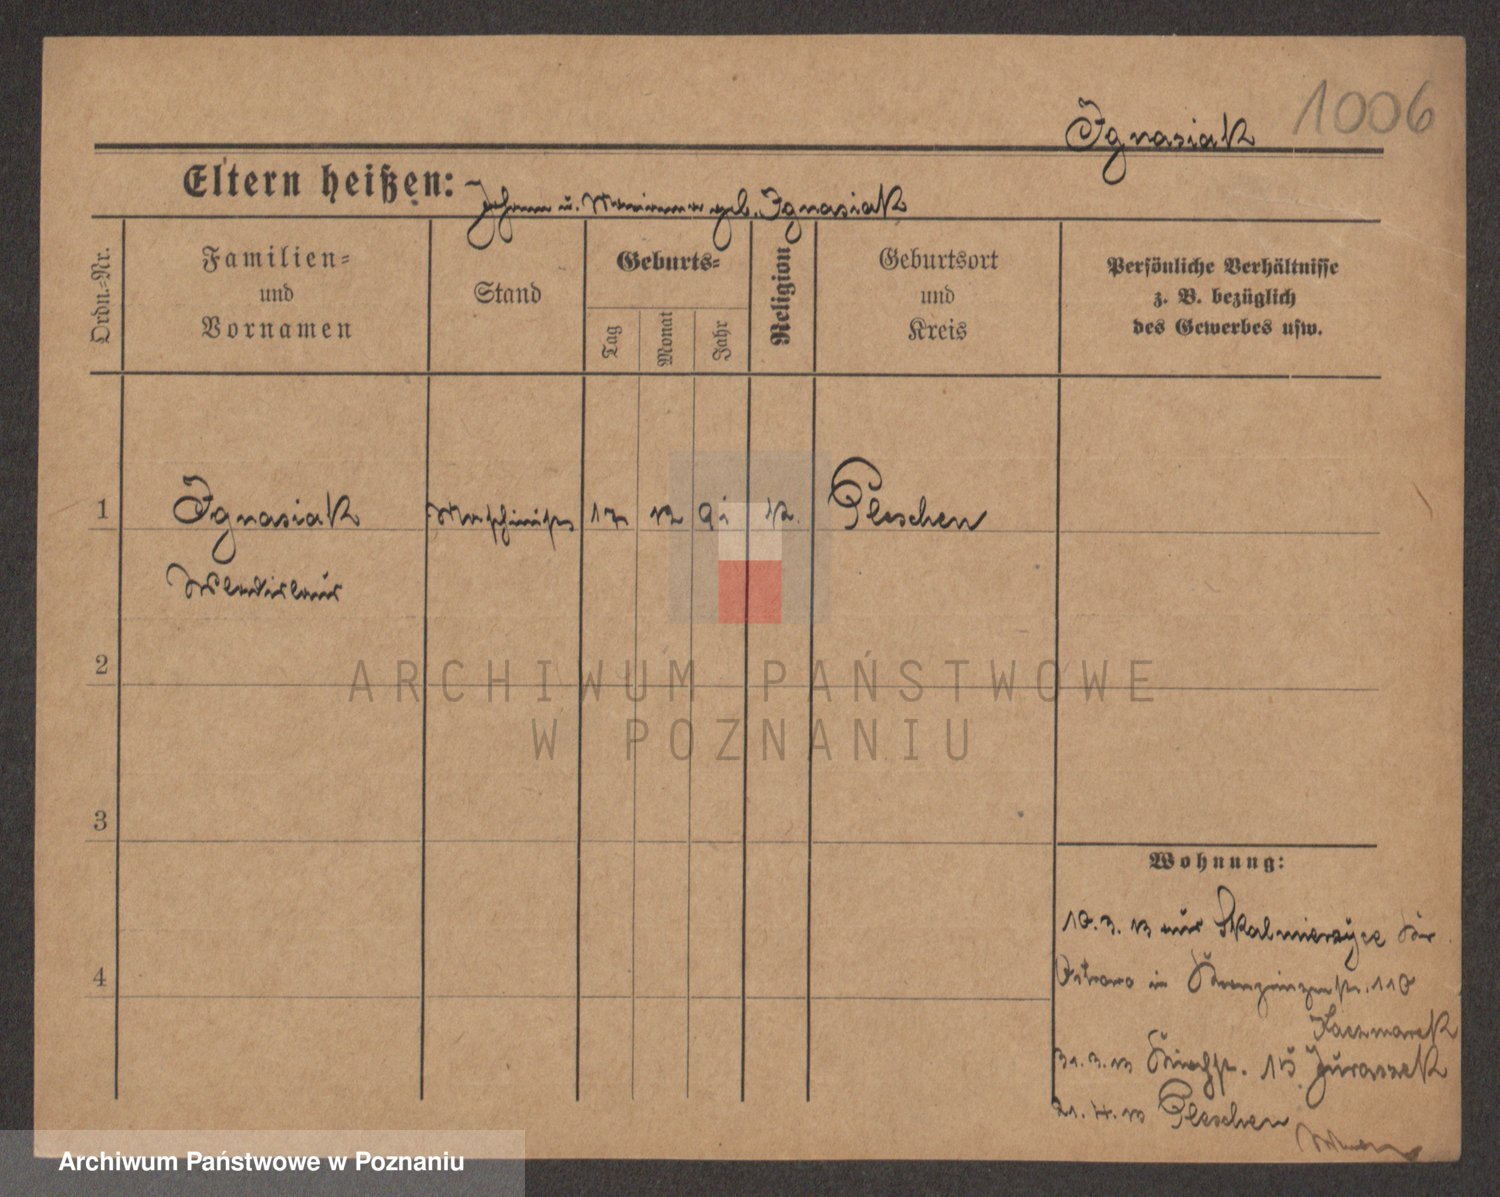 1006
Ignasiak
Eltern heißen: Johann u. Marianna geb. Ignasiak
Ordn.-Nr.
Familien- und Vornamen
Stand
Geburts-
Tag
Monat
Jahr
Religion
Geburtsort und Kreis
Persönliche Verhältnisse z. B. bezüglich des Gewerbes usw.
1 Ignasiak 17 12 k. Pleschen
Wladislaus
2
3
4
Wohnung:
10.3.13 aus Skalmierzyce Kr.
Ostrowo in 110
Kaczmarek
31.3.13 15 Juraszek
21.4.13 Pleschen
ARCHIWUM PAŃSTWOWE
W POZNANIU
Archiwum Państwowe w Poznaniu